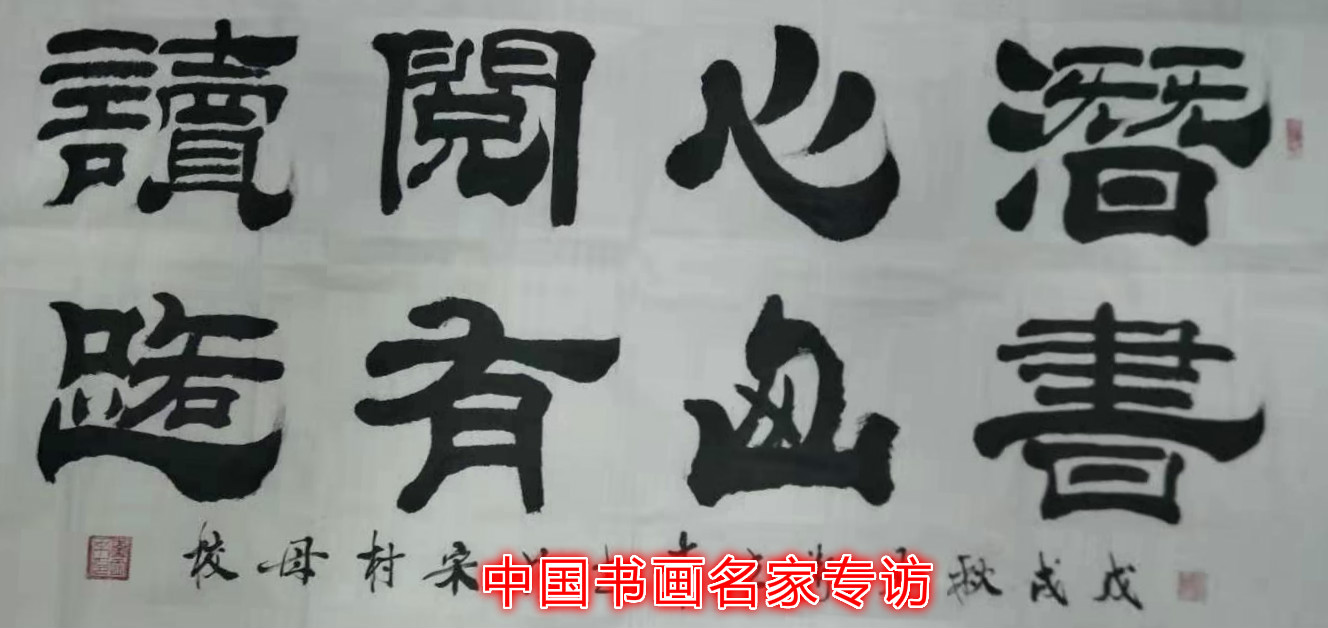 潛心閱讀
書山有路
戊戌秋 宋村母校
中国书画名家专访